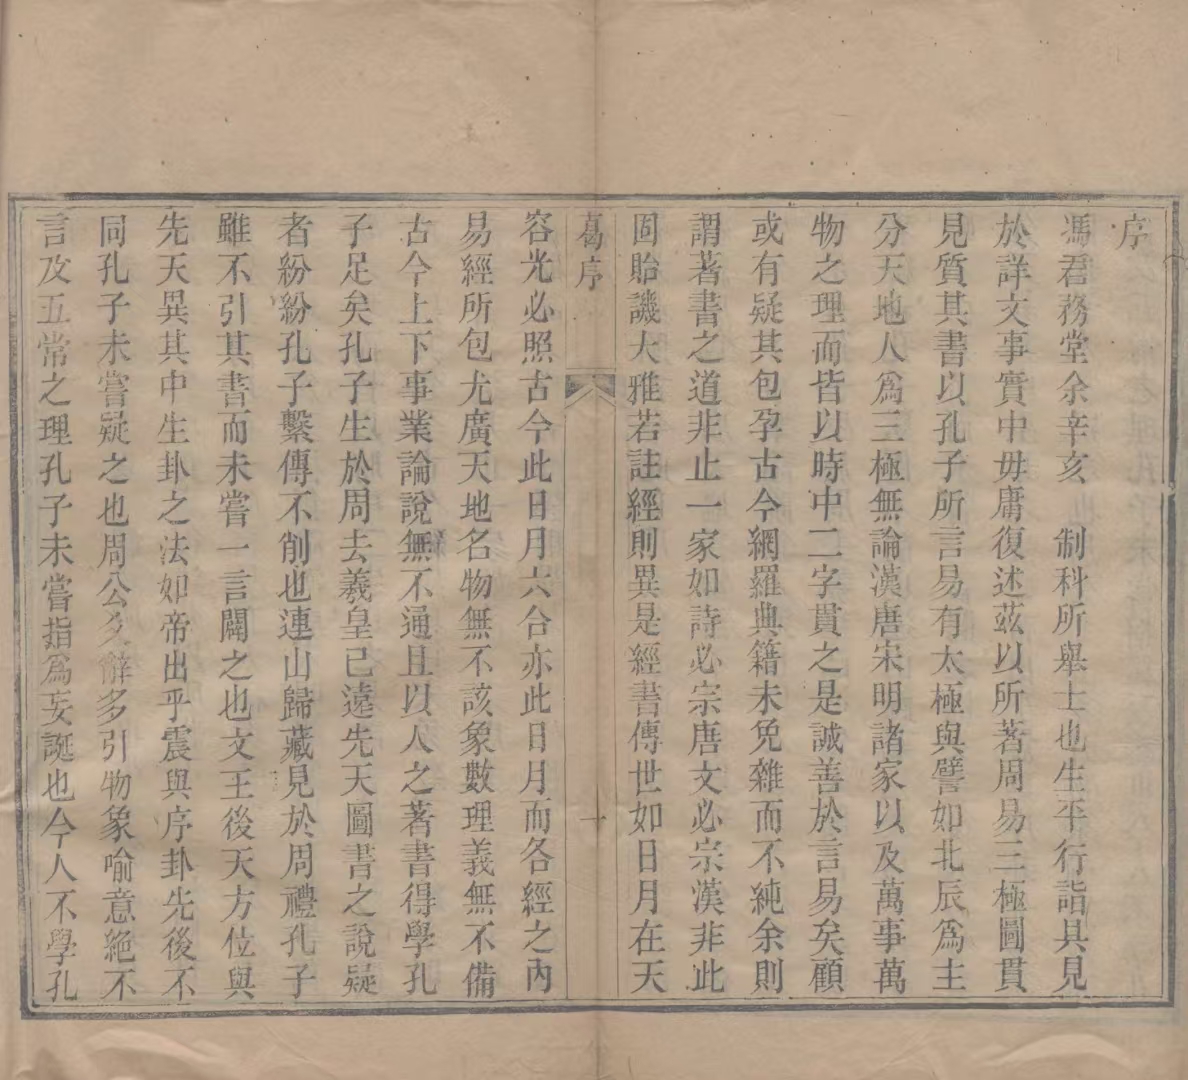 序
馮君務堂余辛亥　制科所舉士也生平行詣具見
於詳文事實中毋庸復述茲以所著周易三極圖貫
見質其書以孔子所言易有太極與譬如北辰爲主
分天地人爲三極無論漢唐宋明諸家以及萬事萬
物之理而皆以時中二字貫之是誠善於言易矣顧
或有疑其包孕古今網羅典籍未免雜而不純余則
謂著書之道非止一家如詩必宗唐文必宗漢非此
固貽譏大雅若註經則異是經書傳世如日月在天
葛序
一
容光必照古今此日月六合亦此日月而各經之內
易經所包尤廣天地名物無不該象數理義無不備
古今上下事業論說無不通且以人之著書得學孔
子足矣孔子生於周去羲皇已遠先天圖書之說疑
者紛紛孔子繫傳不削也連山歸藏見於周禮孔子
雖不引其書而未嘗一言闢之也文王後天方位與
先天異其中生卦之法如帝出乎震與序卦先後不
同孔子未嘗疑之也周公爻辭多引物象喻意絕不
言及五常之理孔子未嘗指爲妄誕也今人不學孔